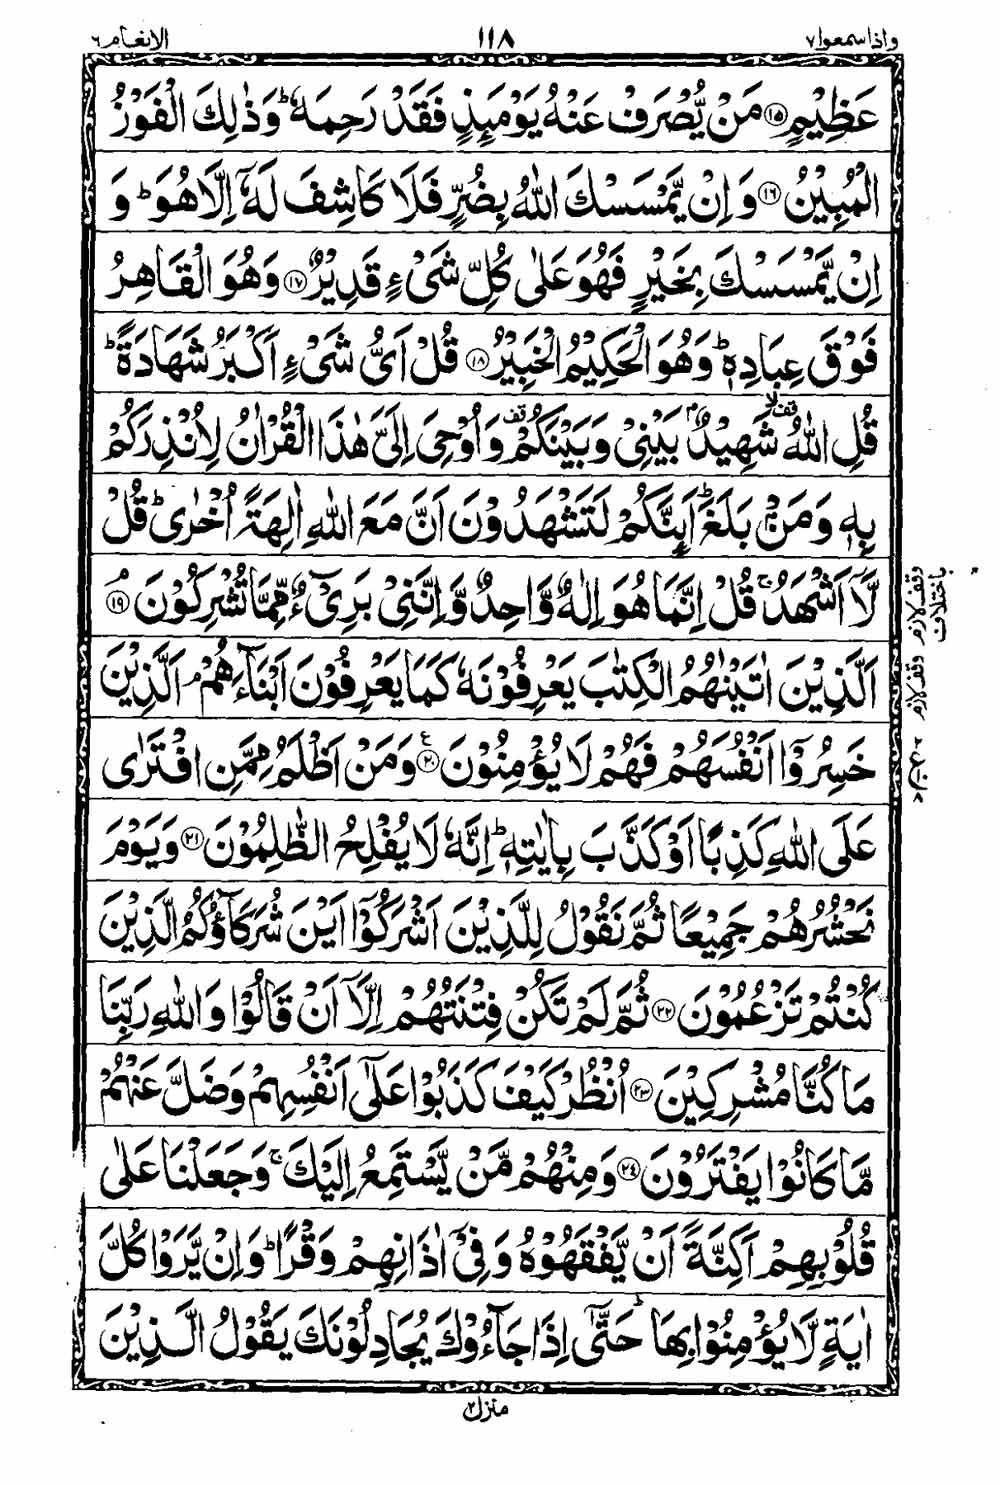 واذاسمعوا۷ ۱۱۸ الانعام٦
عَظِيْمٍ ۝۱۵ مَنْ يُّصْرَفْ عَنْهُ يَوْمَىِٕذٍ فَقَدْ رَحِمَهٗ ؕ وَذٰلِكَ الْفَوْزُ
الْمُبِيْنُ ۝۱۶ وَاِنْ يَّمْسَسْكَ اللّٰهُ بِضُرٍّ فَلَا كَاشِفَ لَهٗۤ اِلَّا هُوَ ؕ وَ
اِنْ يَّمْسَسْكَ بِخَيْرٍ فَهُوَ عَلٰى كُلِّ شَىْءٍ قَدِيْرٌ ۝۱۷ وَهُوَ الْقَاهِرُ
فَوْقَ عِبَادِهٖ ؕ وَهُوَ الْحَكِيْمُ الْخَبِيْرُ ۝۱۸ قُلْ اَىُّ شَىْءٍ اَكْبَرُ شَهَادَةً ؕ
قُلِ اللّٰهُ قف لا شَهِيْدٌۢ بَيْنِىْ وَبَيْنَكُمْ قف وَاُوْحِىَ اِلَىَّ هٰذَا الْقُرْاٰنُ لِاُنْذِرَكُمْ
بِهٖ وَمَنْۢ بَلَغَ ؕ اَىِٕنَّكُمْ لَتَشْهَدُوْنَ اَنَّ مَعَ اللّٰهِ اٰلِهَةً اُخْرٰى ؕ قُلْ
لَّاۤ اَشْهَدُ ۚ قُلْ اِنَّمَا هُوَ اِلٰهٌ وَّاحِدٌ وَّاِنَّنِىْ بَرِىْٓءٌ مِّمَّا تُشْرِكُوْنَ ۝۱۹ۘ
اَلَّذِيْنَ اٰتَيْنٰهُمُ الْكِتٰبَ يَعْرِفُوْنَهٗ كَمَا يَعْرِفُوْنَ اَبْنَآءَهُمْ ۘ اَلَّذِيْنَ
خَسِرُوْۤا اَنْفُسَهُمْ فَهُمْ لَا يُؤْمِنُوْنَ ۝۲۰ ع وَمَنْ اَظْلَمُ مِمَّنِ افْتَرٰى
عَلَى اللّٰهِ كَذِبًا اَوْ كَذَّبَ بِاٰيٰتِهٖ ؕ اِنَّهٗ لَا يُفْلِحُ الظّٰلِمُوْنَ ۝۲۱ وَيَوْمَ
نَحْشُرُهُمْ جَمِيْعًا ثُمَّ نَقُوْلُ لِلَّذِيْنَ اَشْرَكُوْۤا اَيْنَ شُرَكَآؤُكُمُ الَّذِيْنَ
كُنْتُمْ تَزْعُمُوْنَ ۝۲۲ ثُمَّ لَمْ تَكُنْ فِتْنَتُهُمْ اِلَّاۤ اَنْ قَالُوْا وَاللّٰهِ رَبِّنَا
مَا كُنَّا مُشْرِكِيْنَ ۝۲۳ اُنْظُرْ كَيْفَ كَذَبُوْا عَلٰۤى اَنْفُسِهِمْ وَضَلَّ عَنْهُمْ
مَّا كَانُوْا يَفْتَرُوْنَ ۝۲۴ وَمِنْهُمْ مَّنْ يَّسْتَمِعُ اِلَيْكَ ۚ وَجَعَلْنَا عَلٰى
قُلُوْبِهِمْ اَكِنَّةً اَنْ يَّفْقَهُوْهُ وَفِىْۤ اٰذَانِهِمْ وَقْرًا ؕ وَاِنْ يَّرَوْا كُلَّ
اٰيَةٍ لَّا يُؤْمِنُوْا بِهَا ؕ حَتّٰۤى اِذَا جَآءُوْكَ يُجَادِلُوْنَكَ يَقُوْلُ الَّذِيْنَ
وقف لازم باختلاف
وقف لازم
منزل۲